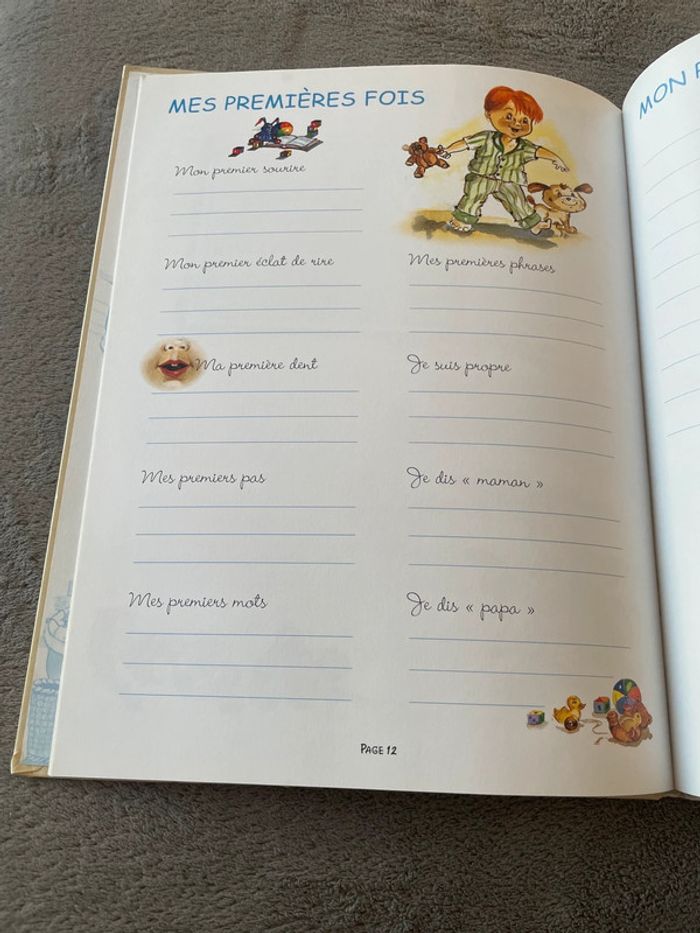 MES PREMIÈRES FOIS
Mon premier sourire
Mon premier éclat de rire
Ma première dent
Mes premiers pas
Mes premiers mots
Mes premières phrases
Je suis propre
Je dis « maman »
Je dis « papa »
PAGE 12
MON